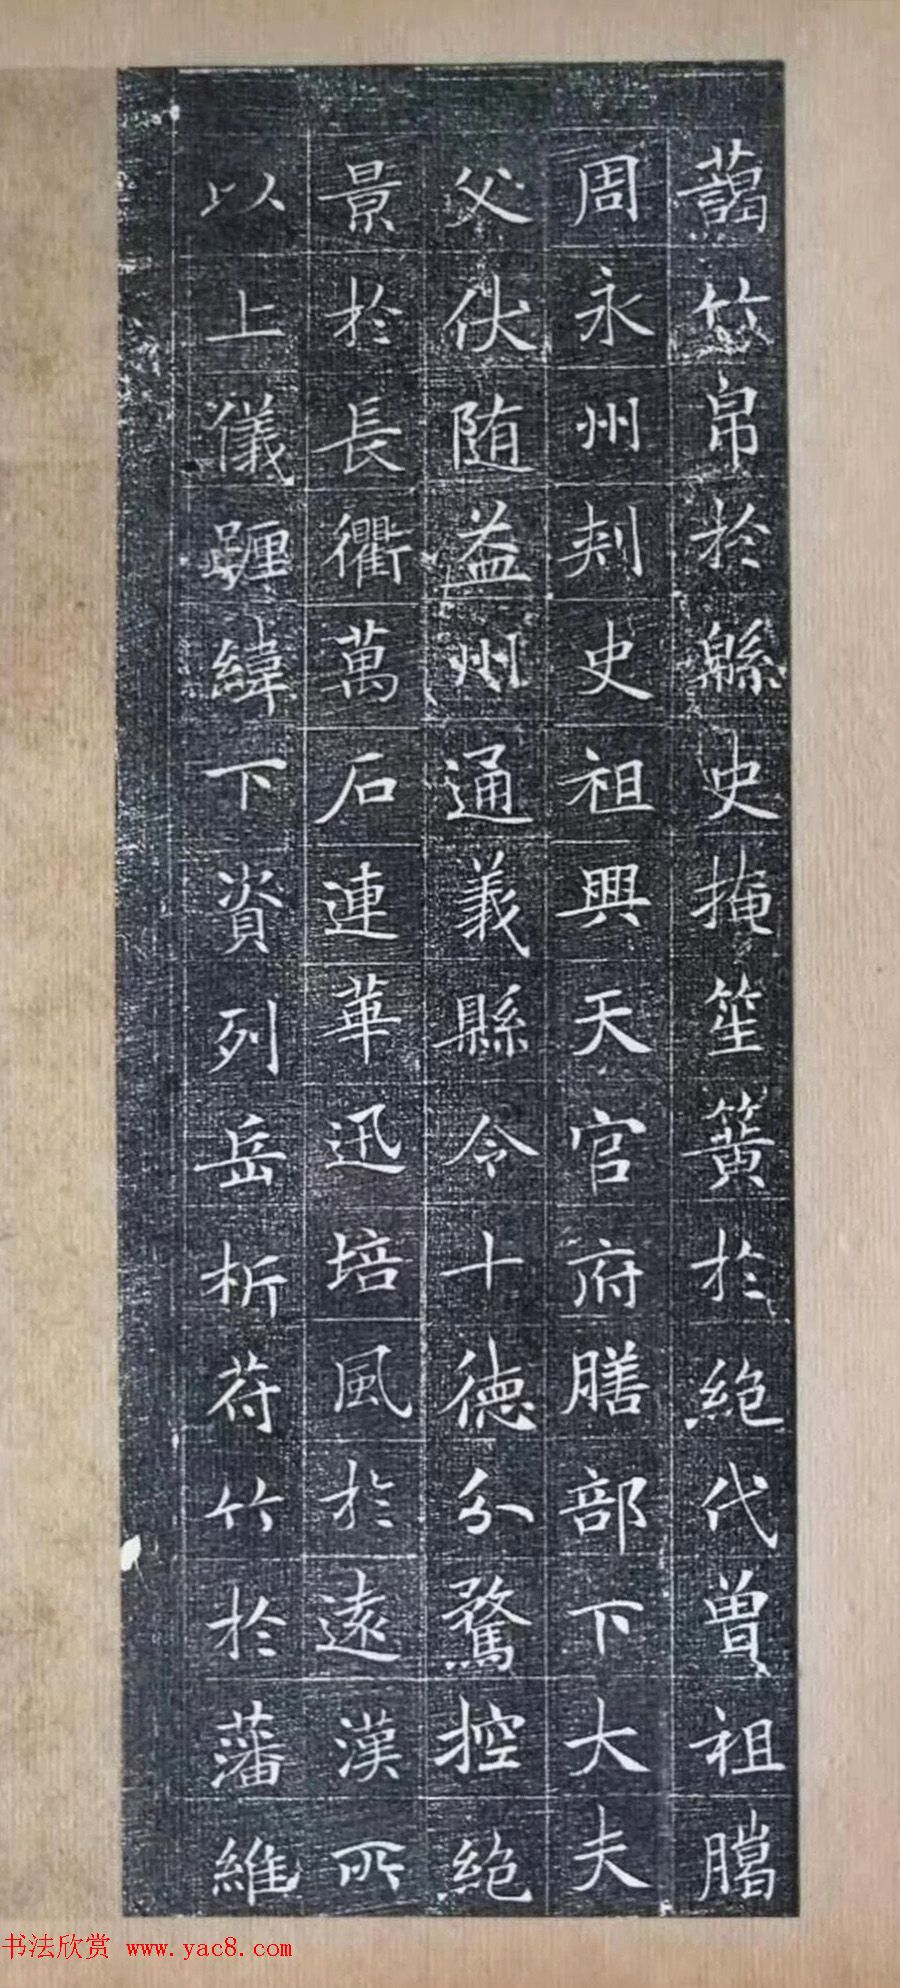 蕌竹帛於緜史掩笙簧於絶代曽祖騰
周永州刾史祖興天官府膳部下大夫
父伏随益州通義縣令十德分驁控絶
景於長衢萬石連華迅培風於遠漢所
以上儀躔緯下資列岳析苻竹於藩維
书法欣赏 www.yac8.com